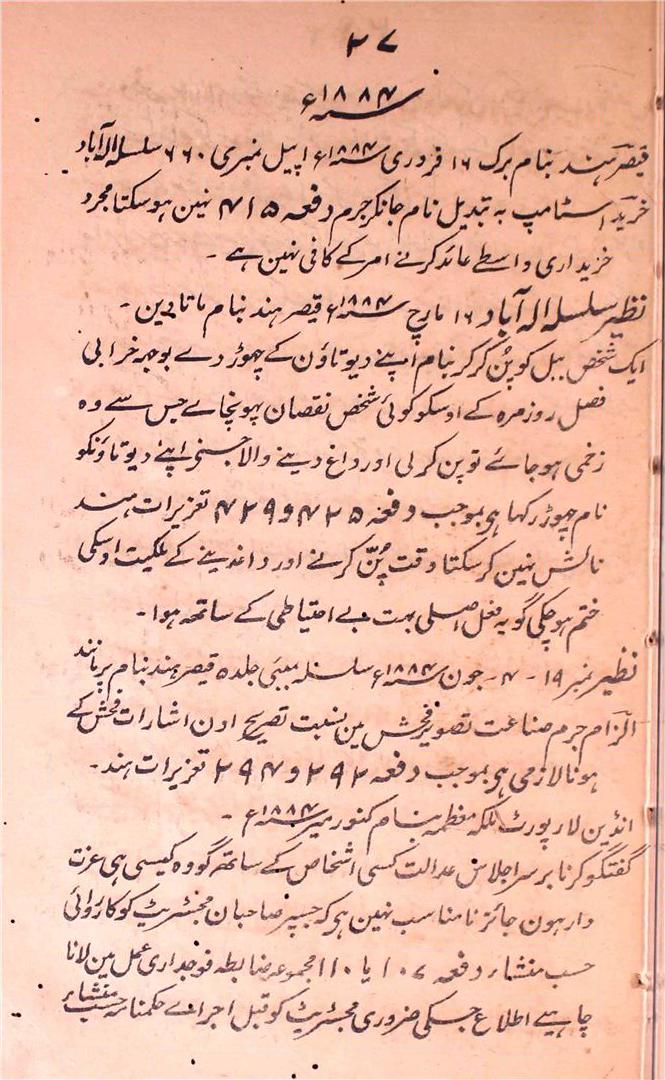 ۲۷
سنہ ۱۸۸۴ء
قیصر ہند بنام برک ۱۶ فروری سنہ ۱۸۸۴ء اپیل نمبری ۶۶۰ سلسلہ الہ آباد
خرید اسٹامپ بہ تبدیل نام جانکر جرم دفعہ ۴۱۵ نہین ہوسکتا مجرد
خریداری واسطے عائد کرنے امر کے کافی نہین ہے ۔
نظیر سلسلہ الہ آباد ۱۶ مارچ سنہ ۱۸۸۴ء قیصر ہند بنام ماتادین ۔
ایک شخص بیل کو پُن کرکر بنام اپنے دیوتاؤن کے چھوڑ دے بوجہ خرابی
فصل روزمرہ کے اوسکو کوئی شخص نقصان پہونچاے جس سے وہ
زخمی ہوجائے تو پن کرلی اور داغ دینے والا جسنی اپنے دیوتاؤنکو
نام چھوڑ رکھا ہی بموجب دفعہ ۴۲۵ و ۴۲۹ تعزیرات ہند
نالش نہین کرسکتا وقت پُنّ کرنے اور داغدینے کے ملکیت اوسکی
ختم ہوچکی گو یہ فعل اصلی بہت بے احتیاطی کے ساتھہ ہوا ۔
نظیر نمبر ۱۹ - ۴ - جون سنہ ۱۸۸۴ء سلسلہ ممبئی جلد ۵ قیصر ہند بنام
الزام جرم صناعت تصویر فحش مین بنسبت تصریح اون اشارات فحش کے
ہونا لازمی ہی بموجب دفعہ ۲۹۲ و ۲۹۴ تعزیرات ہند ۔
انڈین لا رپورٹ ملکہ معظمہ بنام کنور سنہ ۱۸۸۴ء ۔
گفتگو کرنا بر سر اجلاس عدالت کسی اشخاص کے ساتھہ گو وہ کیسی ہی عزت
دار ہون جائز نا مناسب نہین ہی کہ جسپر صاحبان مجسٹریٹ کو کارروائی
حسب منشاء دفعہ ۱۰۷ یا ۱۱۰ مجموعہ ضابطہ فوجداری عمل مین لانا
چاہیے اطلاع جسکی ضروری مجسٹریٹ کو قبل اجراے حکمنامہ حسب منشاء